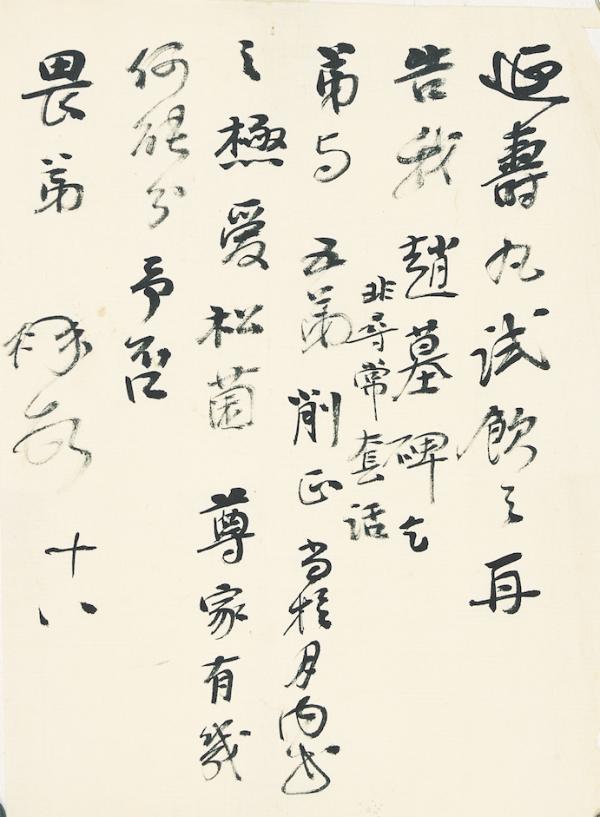 延壽丸試飲之再
告我趙墓碑乞
非尋常套話
弟与五弟削正當於月內成
之極愛松菌尊家有幾
何能分予否
畏弟 十八